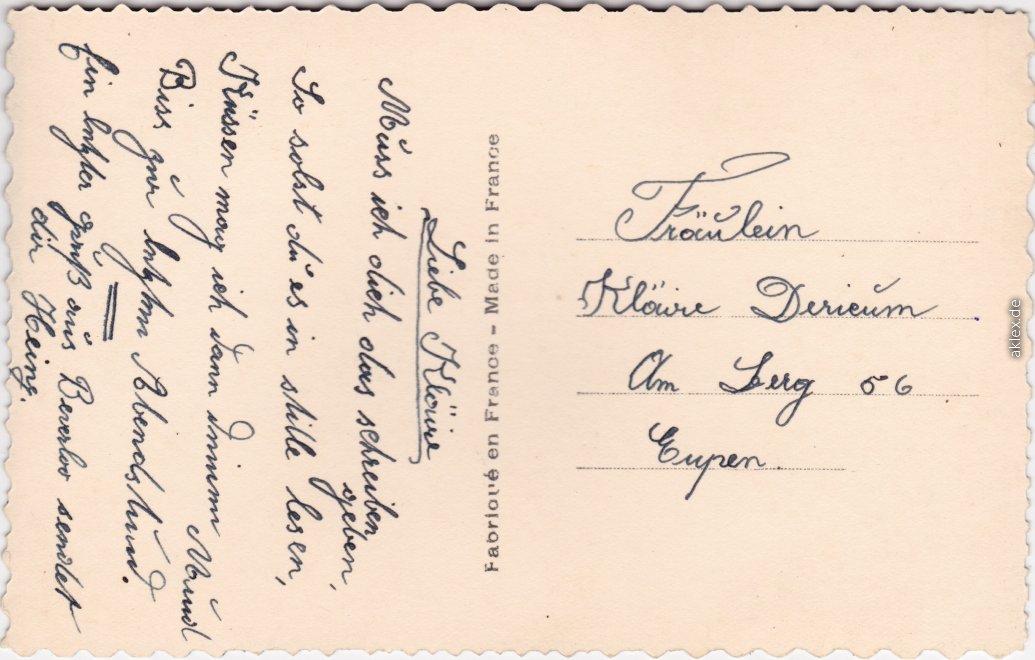 Liebe Kläire
Müss ich dich das schreiben
geben,
So solst dü es in stille lesen,
Küssen mag ich dann deinem Münd
Biss zür letzten Abendstünd.
Ein letzter grüß aüs Beverloo sendet
dir Heinz.
Fabriqué en France - Made in France
Fräülein
Kläire Dericüm
Am Berg 56
Eupen
aklex.de